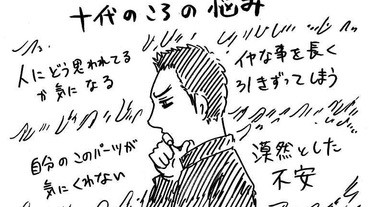 十代のころの悩み
人にどう思われてる
か気になる
イヤな事を長く
引きずってしまう
自分のこのパーツが
気にくわない
漠然とした
不安